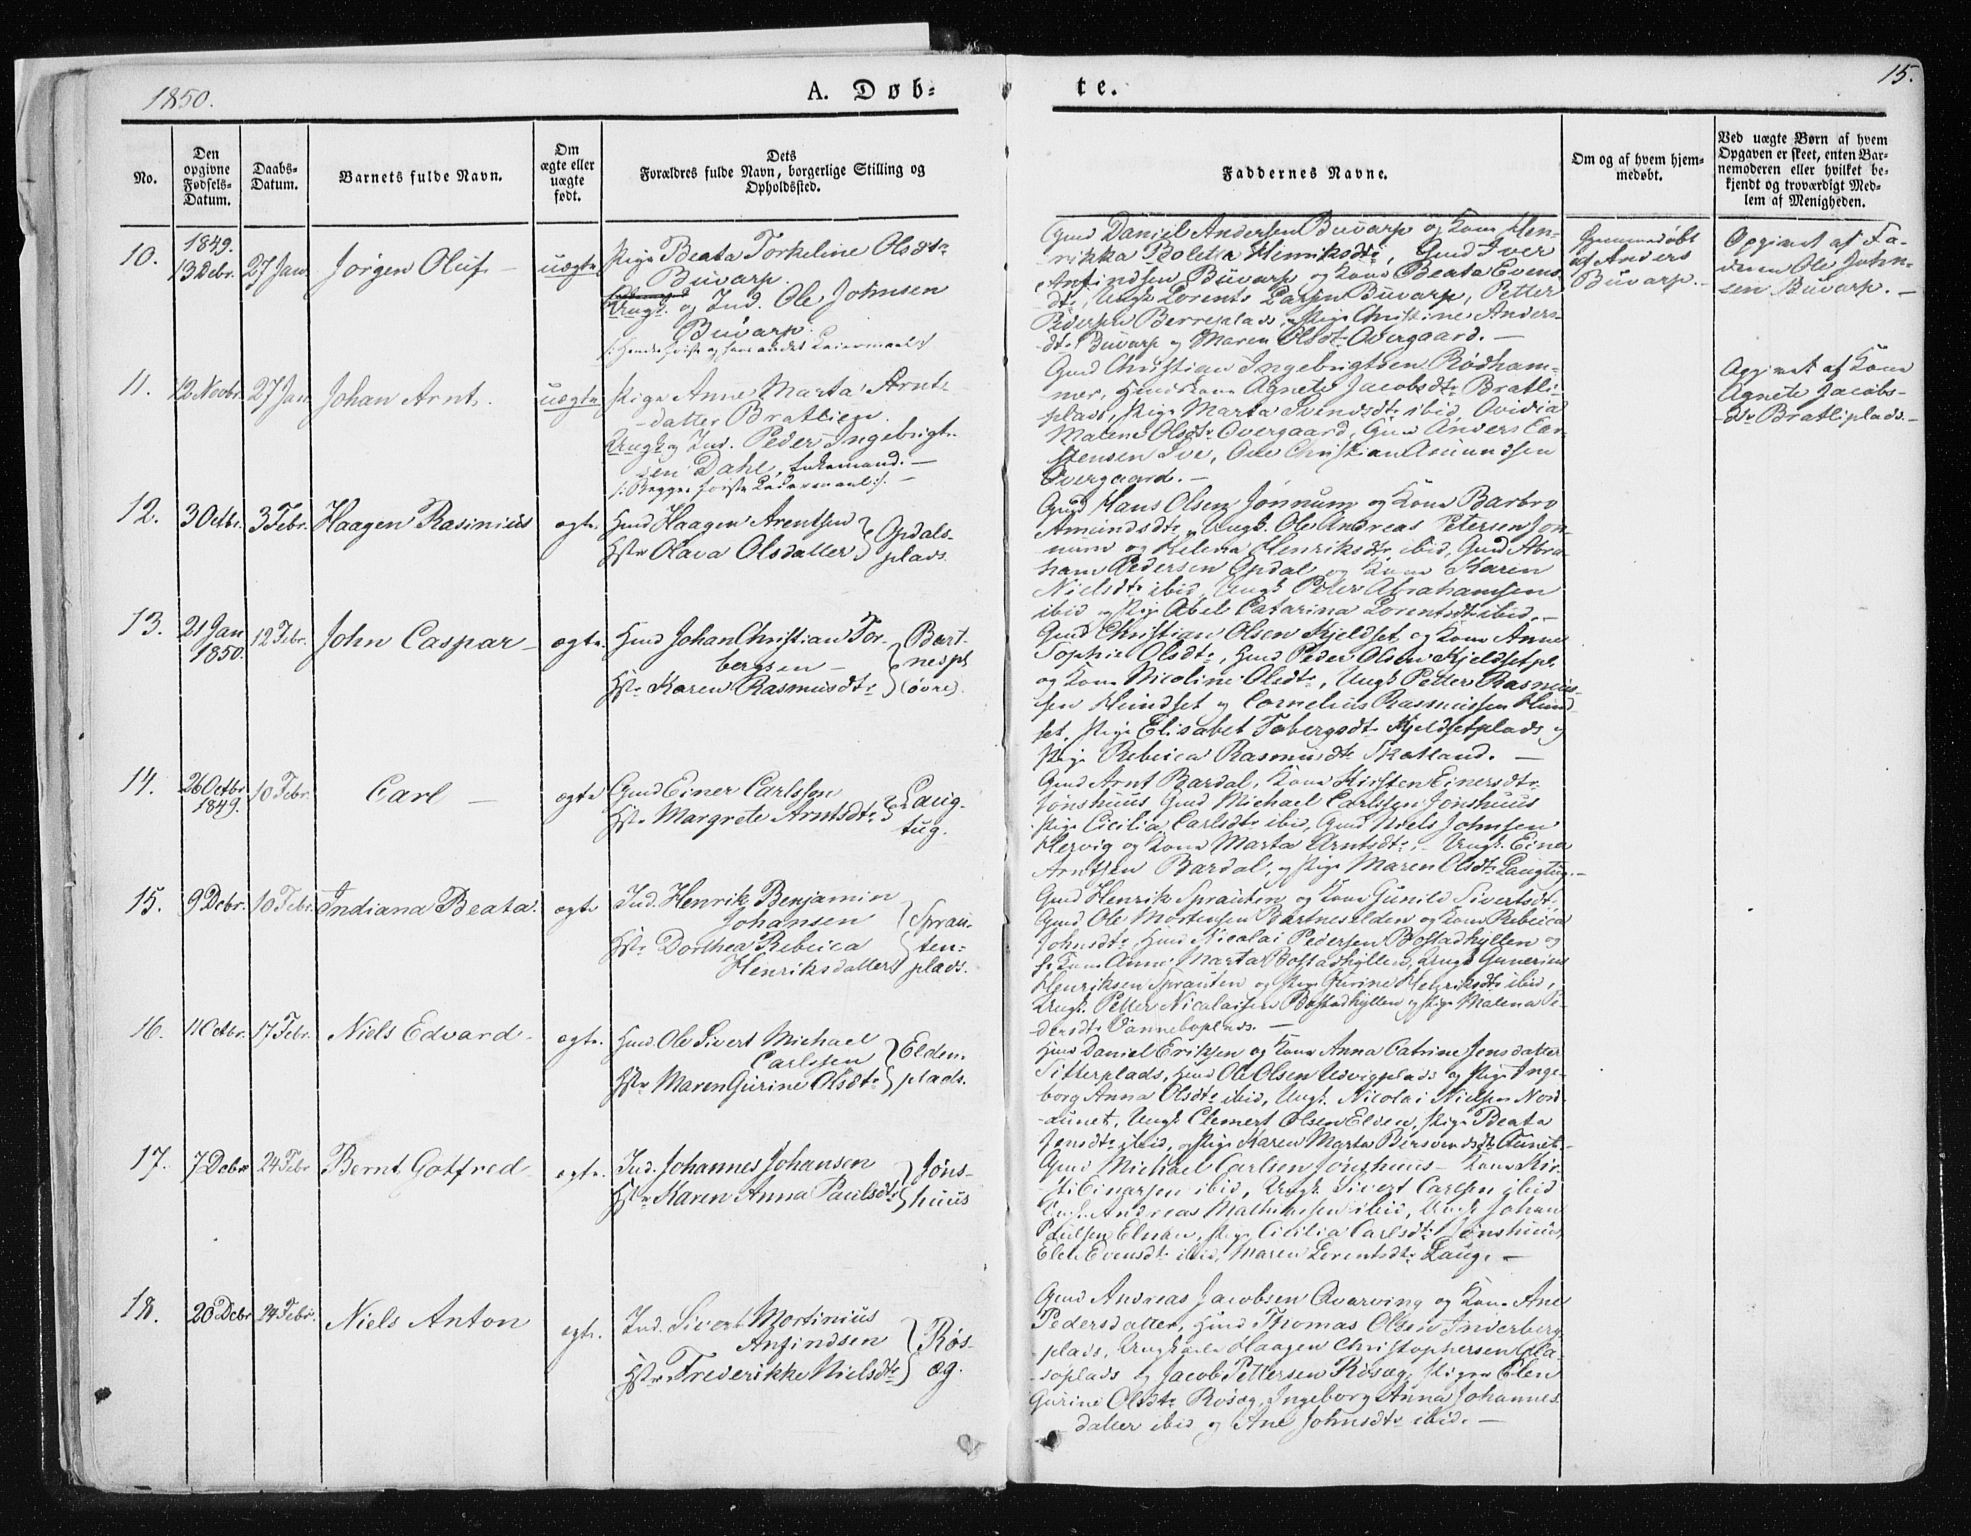 1850.
A. Døb-
te.
15.
No.
Den opgivne Fødsels-Datum.
Daabs-Datum.
Barnets fulde Navn.
Om ægte eller uægte født.
Dets Forældres fulde Navn, borgerlige Stilling og Opholdssted.
Faddernes Navne.
Om og af hvem hjem-medøbt.
Ved uægte Børn af hvem Opgaven er skeet, enten Bar-nemoderen eller hvilket be-kjendt og troværdigt Med-lem af Menigheden.
10.
1849.
13 Debr.
27 Jan
Jørgen Oluf
uægte
Pige Beata Torkeline Olsdtr
Buvarp
Ungk. og Ind. Ole Johnsen
Buvarp
Gmd Daniel Andersen Buvarp og Kone Hen-
rikka Boletta Henriksdtr, Gmd Iver
Anfindsen Buvarp og Kone Beata Evens
dtr, Ungk Lorents Buvarp, Petter
Pedersen Berreplads, Pige Christine Anders-
dtr Buvarp og Maren Olsdtr Overgaard.
Hjemmedøbt
af Anders
Buvarp.
Opgivet af Fa-
deren Ole John-
sen Buvarp.
11.
12 Novbr
27 Jan
Johan Arnt
uægte
Pige Anne Marta Arnt-
datter Bratlien
Ungk og Ind. Peder Ingebrigt-
sen Dahl, Enkemand.
/: Begges første Leiermaal :/
Gmd Christian Ingebrigtsen Rødham-
mer, Huuskone Agnete Jacobsdtr Bratli-
plads, Pige Marta Svendsdtr ibid, Ovidia
Malene Olsdtr Overgaard, Gmd Anders Lar-
stensen Sve, Ole Christian Amundsen
Overgaard.
Opgivet af Kone
Agnete Jacobs-
dtr Bratliplads.
12.
3 Octbr.
3 Febr.
Haagen Rasinius
ægte.
Hmd Haagen Arentsen
Hstr Olava Olsdatter
Opdals-
plads
Gmd Hans Olsen Jønnum og Kone Barbro
Amundsdtr, Ungk. Ole Andreas Petersen Jøn-
num og Helena Henriksdtr ibid, Gmd Abra-
ham Pedersen Opdal og Kone Karen
Nielsdtr ibid, Ungk Peter Abrahamsen
ibid og Pige Abel Catarina Lorentsdtr ibid.
13.
21 Jan
1850.
12 Febr.
John Caspar
ægte
Hmd Johan Christian Tor-
bergsen
Hstr Karen Rasmusdtr
Bart-
nespl
(øvre)
Gmd Christian Olsen Kjeldset og Kone Anne
Sophie Olsdtr, Hmd Peder Olsen Kjeldsetpl
og Kone Nicoline Olsdtr, Ungk Petter Rasmus-
sen Heindset og Cornelius Rasmussen Heind-
set, Pige Elisabet Tobergsdtr Kjeldsetplads og
Pige Rebecca Rasmusdtr Skatland.
14.
26 Octbr
1849.
10 Febr.
Carl
ægte
Gmd Einer Carlssen
Hstr Margrete Arntsdtr
Laug-
tug.
Gmd Arnt Bardal, Kone Kirsten Einersdtr
Jønshuus, Gmd Michael Carlssen Jønshuus
Pige Cicilia Carlsdtr ibid, Gmd Niels Johnsen
Hervig og Kone Marta Arntsdtr, Ungk. Einar
Arntsen Bardal, og Pige Maren Olsdtr Laugtug.
15.
9 Debr.
10 Febr.
Indiana Beata.
ægte
Ind. Henrik Benjamin
Johansen
Hstr Dorthea Rebecca
Henriksdatter
Sprau-
ten-
plads.
Gmd Henrik Sprauten og Kone Gunild Sivertsdtr
Gmd Ole Mortensen Bartneselden og Kone Rebecca
Johnsdtr, Hmd Nicolai Pedersen Bostadhyllen og
Kone Anne Marta Bostadhyllen, Ungk Gunerius
Henriksen Sprauten og Pige Gurine Henriksdtr ibid,
Ungk. Petter Nicolaisen Bostadhyllen og Pige Malena Pe-
dersdtr Vanneboplads.
16.
11 Octbr.
17 Febr.
Niels Edvard
ægte.
Hmd. Ole Sivert Michael
Carlssen
Hstr Maren Gurine Olsdtr
Elden-
plads.
Hmd Daniel Eriksen og Kone Anna Catrine Jensdatter
Sitterplads, Hmd Ole Olsen Udvigplads og Pige Inge-
borg Anna Olsdtr ibid, Ungk. Nicolai Nielsen Nord-
aunet, Ungk Clemert Olsen Elden, Pige Beata
Jensdtr ibid, og Pige Karen Marta Bersvendsdtr Aunet.
17.
7 Debr
24 Febr
Bernt Gotfred
ægte.
Ind. Johannes Johansen
Hstr Maren Anna Paulsdtr
Jøns-
huus
Gmd Michael Carlsen Jønshuus, Kone Kir-
sti Einarsen ibid, Ungk Sivert Carlsen ibid
Ungk Andreas Mathiasen ibid, Ungk Johan
Paulsen Elnan, Pige Cicilia Carlsdtr Jønshuus,
Elen Evensdtr ibid, Maren Lorentsdtr Laug.
18.
20 Debr
24 Febr.
Niels Anton
ægte.
Ind. Sivert Mortinius
Anfindsen
Hstr Frederikke Nielsdtr
Røs-
æg.
Gmd Andreas Jacobsen Qvarving og Kone Ane
Pedersdatter, Hmd Thomas Olsen Inderberg-
plads, Ungkarle Haagen Christophersen Gla-
søplads og Jacob Pettersen Røsæg, Piger Elen
Gurine Olsdtr Røsæg, Ingeborg Anna Johannes-
datter ibid og Ane Johnsdtr ibid.